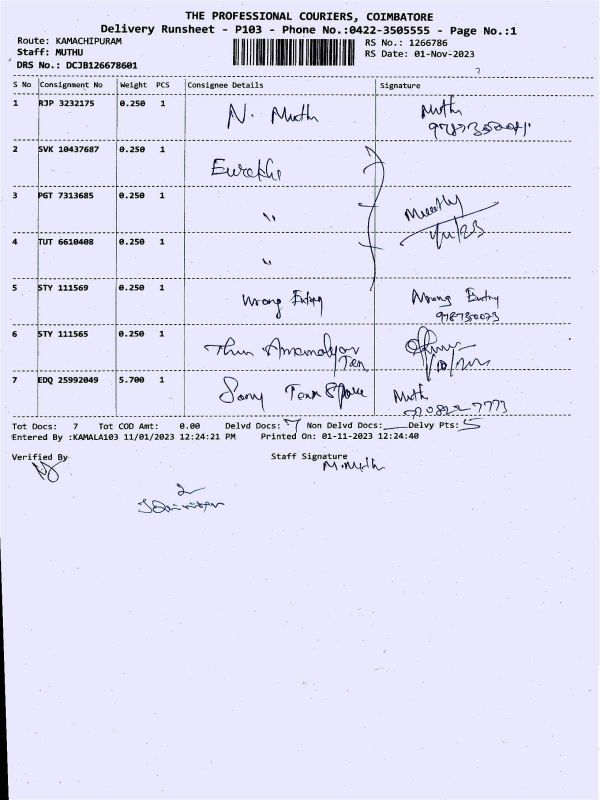 THE PROFESSIONAL COURIERS, COIMBATORE
Delivery Runsheet - P103 - Phone No.:0422-3505555 - Page No.:1
Route: KAMACHIPURAM RS No.: 1266786
Staff: MUTHU RS Date: 01-Nov-2023
DRS No.: DCJB126678601
S No Consignment No Weight PCS Consignee Details Signature
1 RJP 3232175 0.250 1 N. Muth Muth
2 SVK 10437687 0.250 1
3 PGT 7313685 0.250 1 "
4 TUT 6610408 0.250 1 "
5 STY 111569 0.250 1 Wrong Entry Wrong Entry
6 STY 111565 0.250 1
7 EDQ 25992049 5.700 1 Muth
Tot Docs: 7 Tot COD Amt: 0.00 Delvd Docs: 7 Non Delvd Docs: Delvy Pts: 5
Entered By :KAMALA103 11/01/2023 12:24:21 PM Printed On: 01-11-2023 12:24:40
Verified By Staff Signature
M.Muth